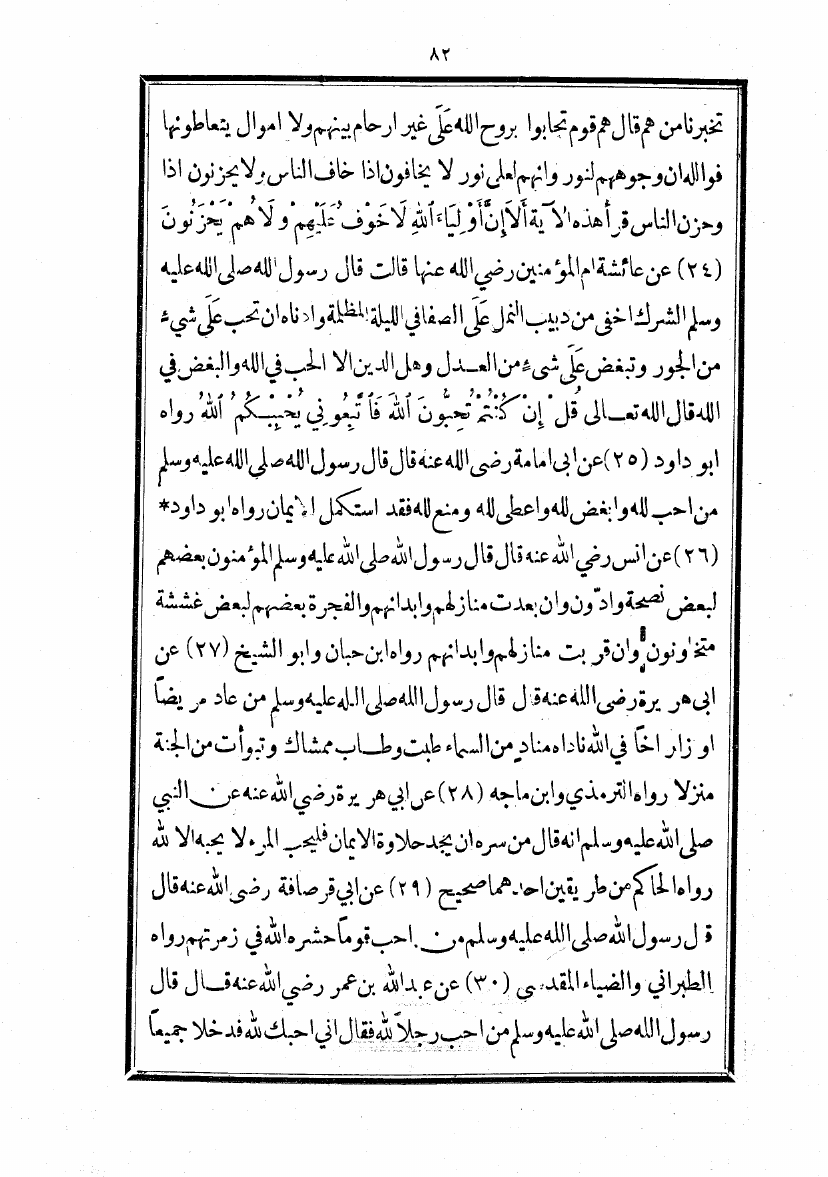 ٨٢
تخبرنا من هم قال هم قوم تحابوا بروح الله عَلَى غير ارحام بينهم ولا اموال يتعاطونها
فوالله ان وجوههم لنور وانهم لعلى نور لا يخافون اذا خاف الناس ولا يحزنون اذا
وحزن الناس قرأ هذه الآية أَلاَ إِنَّ أَوْلِيَاءَ ٱللهِ لاَ خَوْفٌ عَلَيْهِمْ وَلاَ هُمْ يَحْزَنُونَ
(٢٤) عن عائشة ام المؤمنين رضي الله عنها قالت قال رسول الله صلى الله عليه
وسلم الشرك اخفى من دبيب النمل عَلَى الصفا في الليلة المظلمة وادناه ان تحب عَلَى شيء
من الجور وتبغض عَلَى شيء من العدل وهل الدين الا الحب في الله والبغض في
الله قال الله تعالى قُلْ إِنْ كُنْتُمْ تُحِبُّونَ ٱللهَ فَٱتَّبِعُونِي يُحْبِبْكُمُ ٱللهُ رواه
ابو داود (٢٥) عن ابى امامة رضى الله عنه قال قال رسول الله صلى الله عليه وسلم
من احب لله وابغض لله واعطى لله ومنع لله فقد استكمل الايمان رواه ابو داود*
(٢٦) عن انس رضي الله عنه قال قال رسول الله صلى الله عليه وسلم المؤمنون بعضهم
لبعض نصحة وادّون وان بعدت منازلهم وابدانهم والفجرة بعضهم لبعض غششة
متخاونون وان قربت منازلهم وابدانهم رواه ابن حبان وابو الشيخ (٢٧) عن
ابى هريرة رضى الله عنه قال قال رسول الله صلى الله عليه وسلم من عاد مريضاً
او زار اخاً في الله ناداه منادٍ من السماء طبت وطاب ممشاك وتبوأت من الجنة
منزلا رواه الترمذي وابن ماجه (٢٨) عن ابي هريرة رضي الله عنه عن النبي
صلى الله عليه وسلم انه قال من سره ان يجد حلاوة الايمان فليحب المرء لا يحبه الا لله
رواه الحاكم من طريقين احدهما صحيح (٢٩) عن ابي قرصافة رضى الله عنه قال
قال رسول الله صلى الله عليه وسلم من احب قوماً حشره الله في زمرتهم رواه
الطبراني والضياء المقدسي (٣٠) عن عبد الله بن عمر رضي الله عنه قال قال
رسول الله صلى الله عليه وسلم من احب رجلاً لله فقال اني احبك لله فدخلا جميعاً